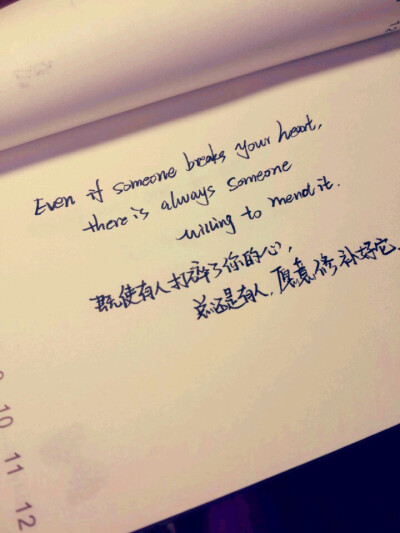 Even if someone breaks your heart,
there is always someone
willing to mend it.
既使有人打碎了你的心,
总还是有人,愿意修补好它.
9
10
11
12